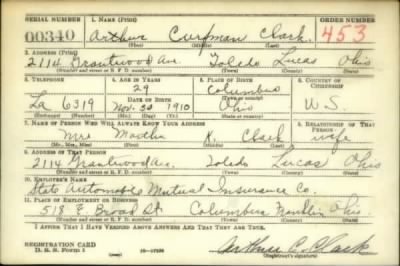 SERIAL NUMBER 1. NAME (Print) ORDER NUMBER
00340 Arthur Curfman Clark 453
(First) (Middle) (Last)
2. ADDRESS (Print)
2114 Brantwood Av. Toledo Lucas Ohio
(Number and street or R. F. D. number) (Town) (County) (State)
3. TELEPHONE 4. AGE IN YEARS 5. PLACE OF BIRTH 6. COUNTRY OF CITIZENSHIP
29 Columbus
DATE OF BIRTH (Town or county)
La 6319 Nov. 30 1910 Ohio U.S.
(Exchange) (Number) (Mo.) (Day) (Yr.) (State or country)
7. NAME OF PERSON WHO WILL ALWAYS KNOW YOUR ADDRESS 8. RELATIONSHIP OF THAT PERSON
Mrs Martha K. Clark wife
(Mr., Mrs., Miss) (First) (Middle) (Last)
9. ADDRESS OF THAT PERSON
2114 Brantwood Av. Toledo Lucas Ohio
(Number and street or R. F. D. number) (Town) (County) (State)
10. EMPLOYER'S NAME
State Automobile Mutual Insurance Co.
11. PLACE OF EMPLOYMENT OR BUSINESS
518 E Broad St. Columbus Franklin Ohio
(Number and street or R. F. D. number) (Town) (County) (State)
I AFFIRM THAT I HAVE VERIFIED ABOVE ANSWERS AND THAT THEY ARE TRUE.
REGISTRATION CARD
D. S. S. Form 1 (over) Arthur C. Clark
(Registrant's signature)